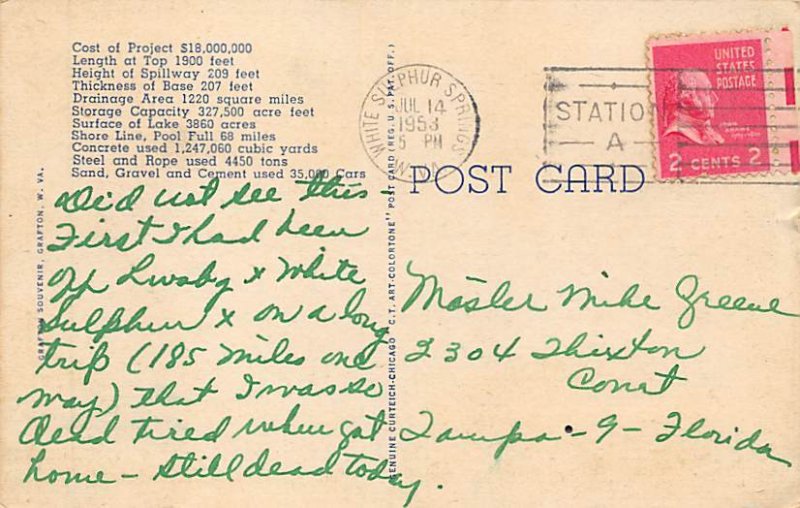 Cost of Project $18,000,000
Length at Top 1900 feet
Height of Spillway 209 feet
Thickness of Base 207 feet
Drainage Area 1220 square miles
Storage Capacity 327,500 acre feet
Surface of Lake 3860 acres
Shore Line, Pool Full 68 miles
Concrete used 1,247,060 cubic yards
Steel and Rope used 4450 tons
Sand, Gravel and Cement used 35,000 Cars
Did not see this -
First I had been
off x White
Sulphur x on a long
trip (185 miles one
way) that I was so
dead tired when got
home - still dead today.
GRAFTON SOUVENIR, GRAFTON, W. VA.
GENUINE CURTEICH-CHICAGO "C.T. ART-COLORTONE" POST CARD (REG. U.S. PAT. OFF.)
WHITE SULPHUR SPRINGS
JUL 14
1953
5 PM
W. VA.
STATION
A
UNITED
STATES
POSTAGE
JOHN ADAMS
2 CENTS 2
POST CARD
Master Mike Greene
2304 Thixton
Court
Tampa - 9 - Florida